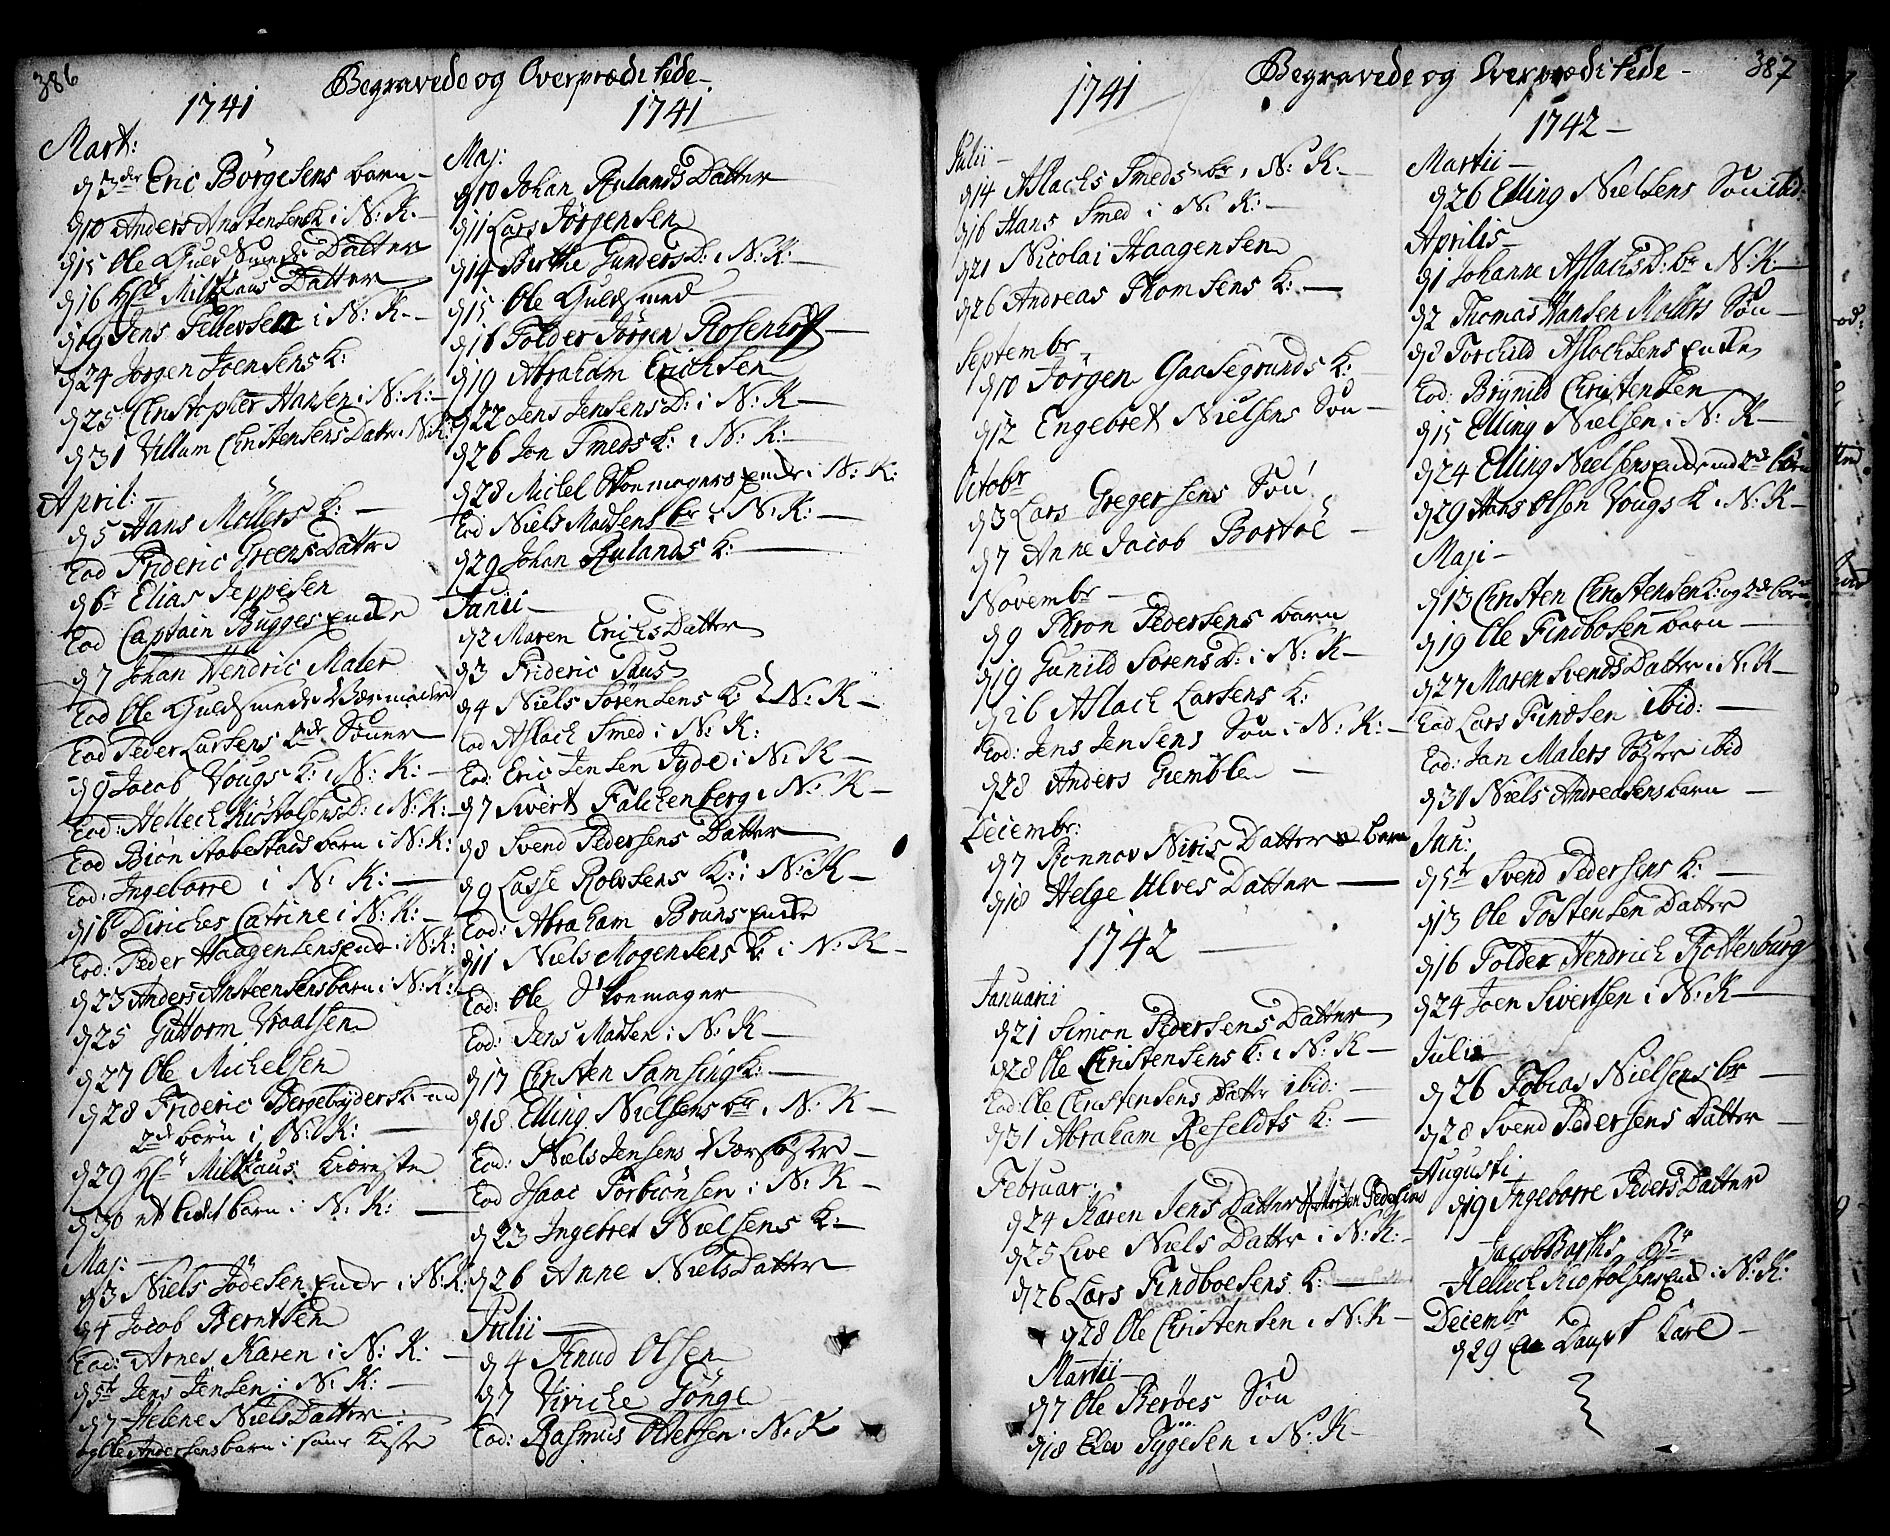 386
Begravede og Overprædikede
1741
Mart:
d 3die Eric Börgesens barn
d 10 Anders Anstensens K i N: K:
d 15 Ole Guld Smeds Datter
d 16 Hr Miltzaus Datter
d 19 Jens Pettersen i N: K
d 24 Jörgen Joensens K:
d 25 Christopher Hansen i N: K:
d 31 Villum Christensens Datr i N: K:
April:
d 5 Hans Möllers K:
Eod Frideric Greens Datter
d 6te Elias Jeppesen
Eod Captain Bugges Encke
d 7 Johan Hendric Maler
Eod Ole Guldsmeds Værmoder
Eod Peder Larsens 2de Sönner
d 9 Jacob Vougs K: i N: K:
Eod: Hellech Kiöstolfers D: i N: K:
Eod Biön Stabestads barn i N: K:
Eod: Ingeborre i N: K:
d 16 Diriches Catrine i N: K:
Eod: Peder Haagensens Enke i N: K:
d 23 Anders Ansteensens barn i N: K:
d 25 Guttorm Vraalsen
d 27 Ole Michelsen
d 28 Frideric Bergebyders K: med
2de barn i N: K:
d 29 Hr Miltzaus Kiæreste
d 30 et lidet barn i N: K:
Maj:
d 3 Niels Jödesen Encke i N: K:
d 4 Jacob Berntsen
Eod: Arnes Karen i N: K:
d 5t Jens Jensen i N: K:
d 7 Helene Niels Datter
og Ole Andersens barn i samme Kiste
1741
Maj:
d 10 Johan Rulands Datter
d 11 Lars Jörgensen
d 14 Birthe Gunders D: i N: K:
d 15 Ole Guldsmed
d 16 Tolder Jörgen Rosenhoff
d 19 Abraham Erichsen
d 22 Jens Jensens D: i N: K
d 26 Jon Smeds K: i N: K:
d 28 Michel Skomagers Encke i N: K:
Eod Niels Madsens br i N: K:
d 29 Johan Rulands K:
Junii
d 2 Maren Erichs Datter
d 3 Frideric Skus
d 4 Niels Sörensens K: i N: K
Eod Aslach Smed i N: K:
Eod: Eric Jensen Jyde i N: K
d 7 Sivert Falckenberg i N: K
d 8 Svend Pedersens Datter
d 9 Lasse Rolvsens K: i N: K
Eod: Abraham Bruns Encke
d 11 Niels Mogensens K: i N: K
Eod: Ole Skoemager
Eod: Jens Madsen i N: K
d 17 Christen Samsing K:
d 18 Elling Nielsens br i N: K
Eod: Niels Jensens Værsöster
Eod Isaac Torbiönsen i N: K
d 23 Ingebret Nielsens K:
d 26 Anne Niels Datter
Julii
d 4 Knud Olsen
d 7 Viriche Gönge
Eod: Rasmus Ottersen i N: K
387
Begravede og Overprædikede
1741
Julii
d 14 Aslachs Smeds br i N: K:
d 16 Hans Smed i N: K:
d 21 Nicolai Haagensen
d 26 Andreas Thomsens K:
Septembr
d 10 Jörgen Gaasegrunds K:
d 12 Engebret Nielsens Sön
Octobr
d 3 Lars Gregersens Sön
d 7 Anne Jacob Bortöe
Novembr
d 9 Thron Pedersens barn
d 19 Gunild Sörens D: i N: K
d 26 Aslach Larsens K:
Eod: Jens Jensens Sön i N: K:
d 28 Anders Giemble
Decembr:
d 7 Ronnov Niris Datter barn
d 18 Helge Ulves Datter
1742
Januarii
d 21 Simon Pedersens Datter
d 28 Ole Christensens K: i N: K
Eod: Ole Christensens Datter ibid:
d 31 Abraham Refeldts K:
Februar:
d 24 Karen Jens Datter Morten Pedersens
d 25 Live Niels Datter i N: K:
d 26 Lars Findboesens K:
d 28 Ole Christensen i N: K
Martii
d 7 Ole Beröes Sön
d 18 Elev Tygesen i N: K
1742
Martii
d 26 Elling Nielsens Sön ibid:
Aprilis
d 1 Johanne Aslachs D: br N: K
d 2 Thomas Hansen Mollers Sön
d 8 Torchild Aslochsens Encke
Eod: Brynild Christensen
d 15 Elling Nielsen i N: K
d 24 Elling Nielsens Encke med 2de börn
d 29 Hans Olsen Vougs K i N: K
Maji
d 13 Christen Christensens K: og 2de börn
d 19 Ole Findbosen barn
d 27 Maren Svends Datter i N: K
Eod Lars Findsen ibid:
Eod: Jan Malers Söster ibid
d 31 Niels Andreasens barn
Jun:
d 5t Svend Pedersens K:
d 13 Ole Tostensen Datter
d 16 Tolder Hendrich Rottenburg
d 24 Joen Sivertsen i N: K
Julii
d 26 Tobias Nielsens br
d 28 Svend Pedersens Datter
Augusti
d 19 Ingeborre Peders Datter
Jacob Barths Br
Hellech Kiostolsens Encke i N: K:
Decembr
d 29 en Dansk Karl